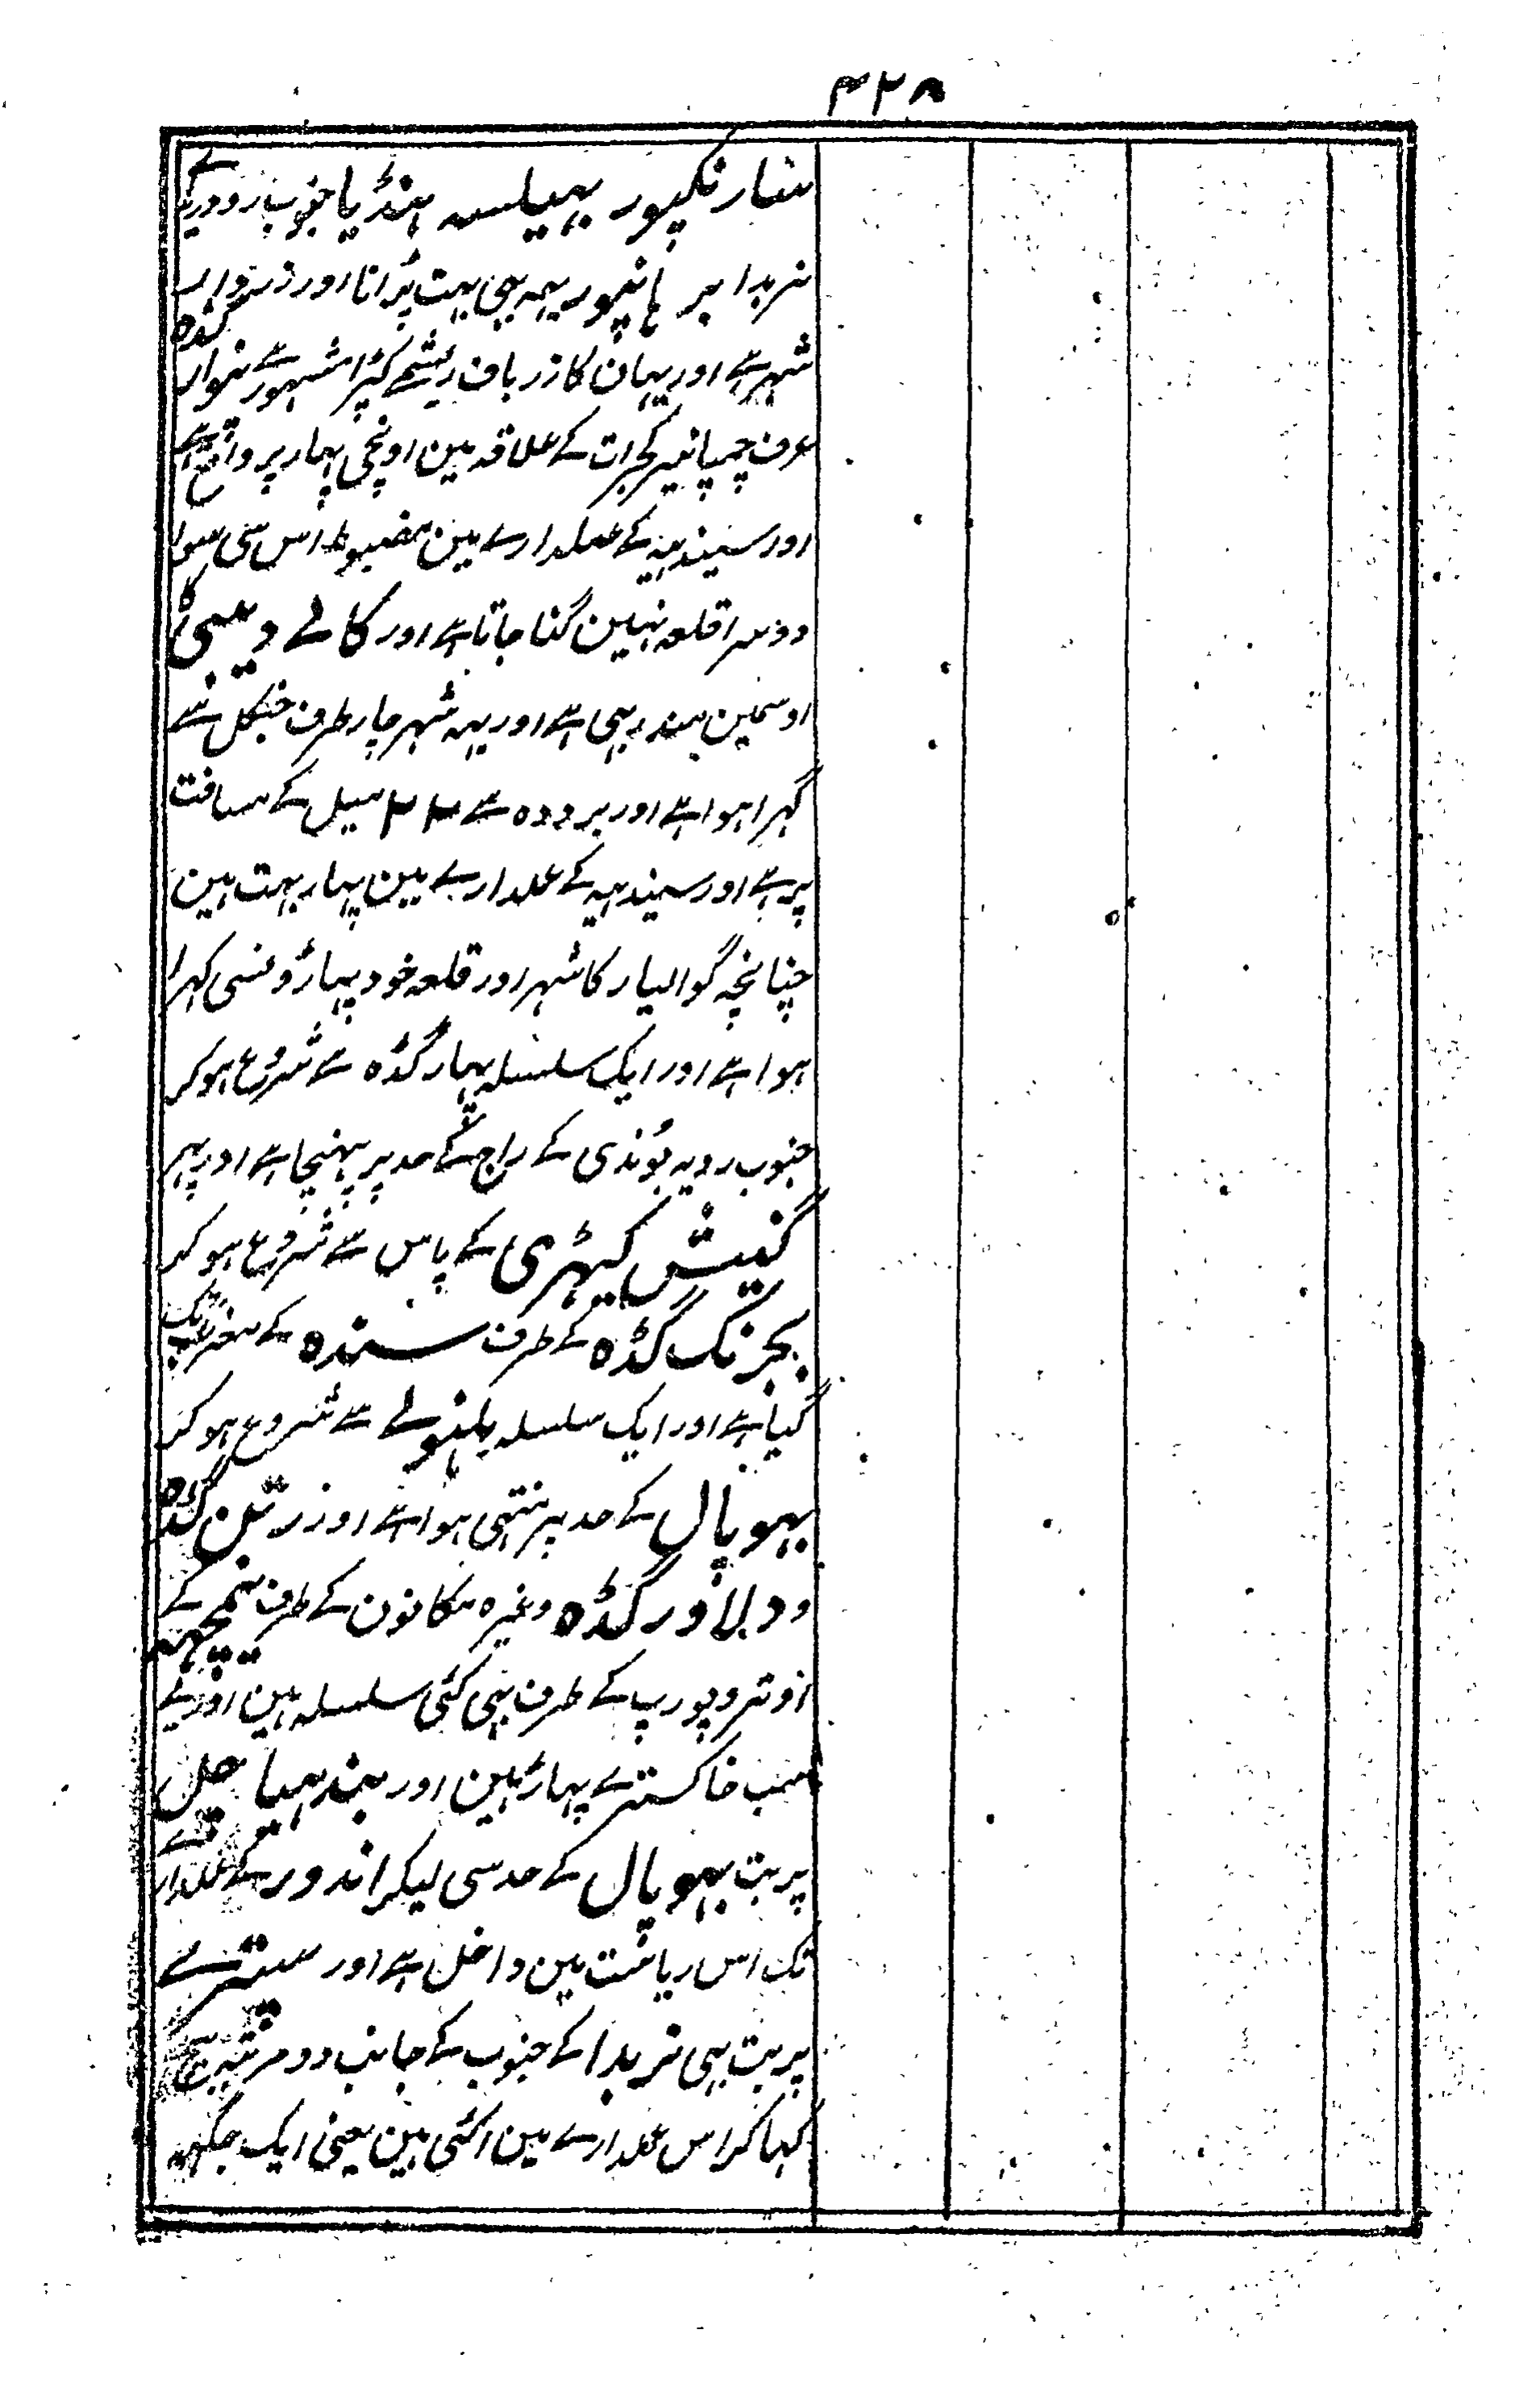 ۴۲۸
سارنگپور بہیلسہ ہنڈیا جنوب رودریے
نربدا برہانپور یہہ بہی بہت پُرانا اور زردار
شہر ہے اور یہان کا زر باف ریشمے کپڑا مشہور ہے نواز گڈہ
عرف چمپانیر گجرات کے علاقہ مین اونچی پہار پر واقع ہے
اور سیندہیہ کے عملدارے مین مضبوط اس سی سوا
دوسرا قلعہ نہین گنا جاتا ہے اور کالے دیبی کا
اوسمین مندر بہی ہے اور یہہ شہر چار طرف جنگل سے
گہرا ہوا ہے اور برودہ سے ۲۲ میل کے مسافت
پر ہے اور سیندہیہ کے عملدارے مین پہار بہت ہین
چنانچہ گوالیار کا شہر اور قلعہ خود پہاڑونسی گہرا
ہوا ہے اور ایک سلسلہ پہار گڈہ سے شروع ہوکر
جنوب رویہ بُوندی کے راج کے حد پر پہنچا ہے اور پہر
گنیش کہیڑی کے پاس سے شروع ہوکر
بجرنگ گڈہ کے طرف سندہ کے مغرب تک
گیا ہے اور ایک سلسلہ پلہنولے سے شروع ہوکر
بہوپال کے حد پر منتہی ہوا ہے اور رتن گڈہ
و دلاور گڈہ وغیرہ مکانون کے طرف نیمچہہ کے
اوتر و پورب کے طرف بہی کئی سلسلہ ہین اور یے
سب خاکسترے پہاڑ ہین اور بندہیاچل
پربت بہوپال کے حد سی لیکر اندور کے عملدارے
تک اس ریاست مین داخل ہے اور سیترے
پربت بہی نربدا کے جنوب کے جانب دو مرتبہ پیچ
کہا کر اس عملدارے مین اگئی ہین یعنی ایک جگہہ